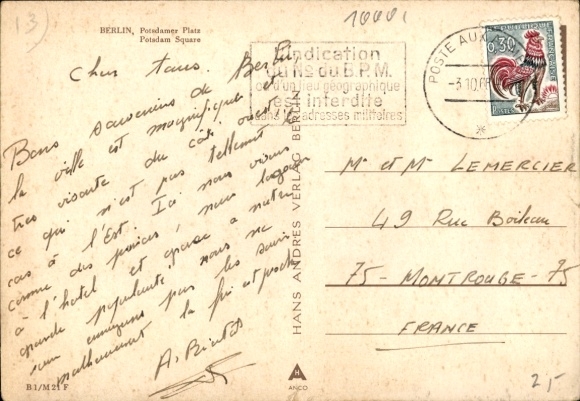 13)
10001
BERLIN, Potsdamer Platz
Potsdam Square
Cher tous.
Bons souvenirs de Berlin,
la ville est magnifique et
très vivante du côté ouest
ce qui n'est pas tellement
cas à l'Est. Ici nous vivons
comme des princes, nous logeons
à l'hotel et grace à notre
grande popularité nous ne
nous ennuyons pas les soirs
malheureusement la fin est proche
A Bientôt
B 1/M 21 F
HANS ANDRES VERLAG BERLIN
H
A
ANCO
L'indication
du No du B.P.M.
ou d'un lieu géographique
est interdite
dans les adresses militaires
POSTE AUX
-3.10.66
0,30
Mr et Mme LEMERCIER
49 Rue Boileau
75 - MONTROUGE - 75
FRANCE
2,-